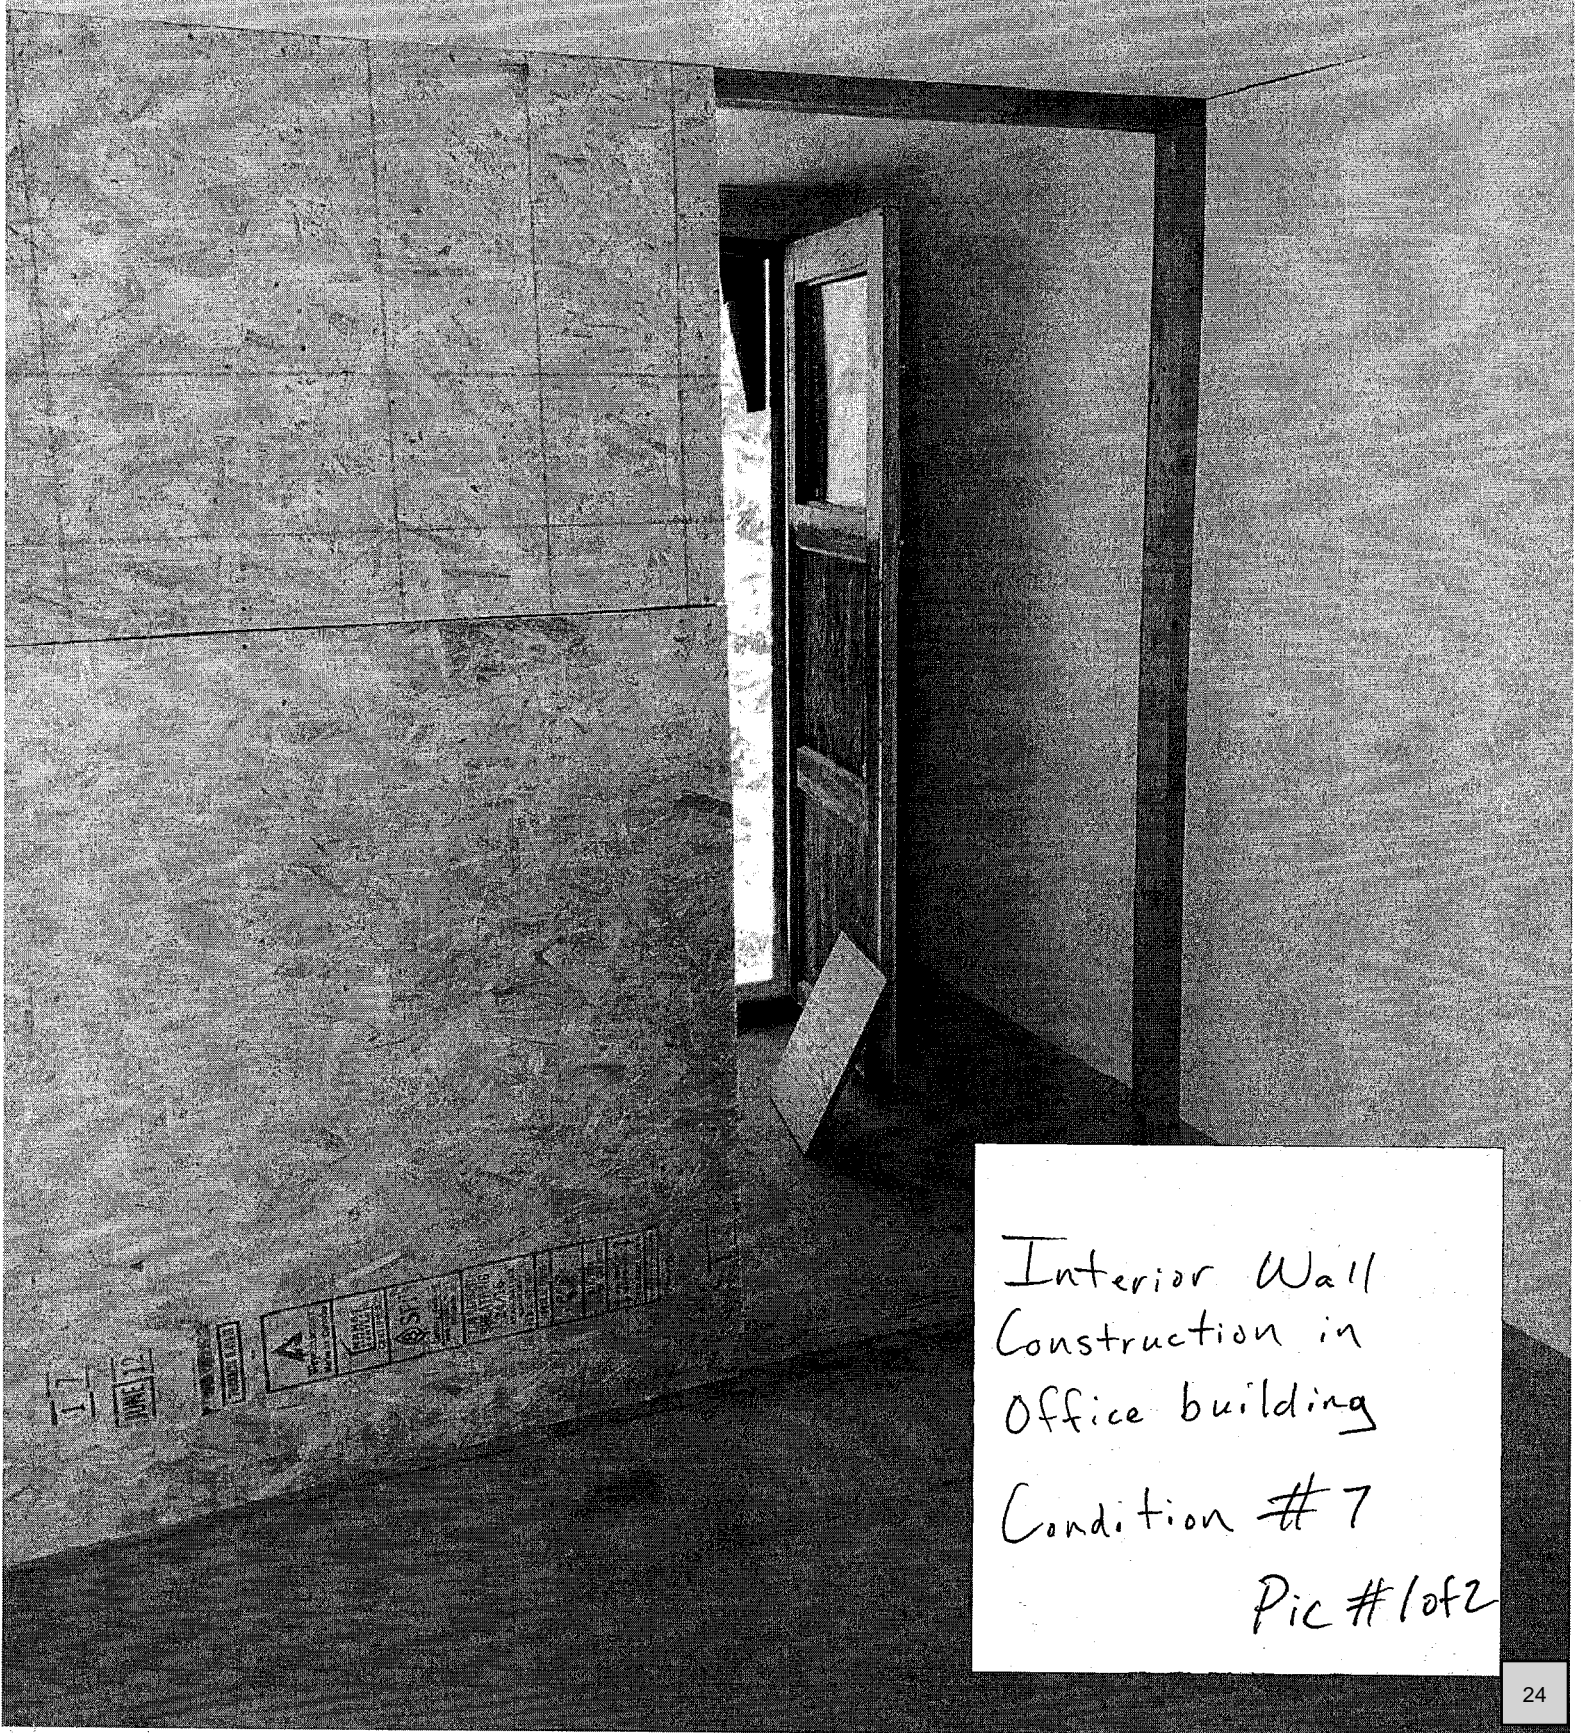 17
JUNE 12
Interior Wall
Construction in
Office building
Condition #7
Pic #1of2
24